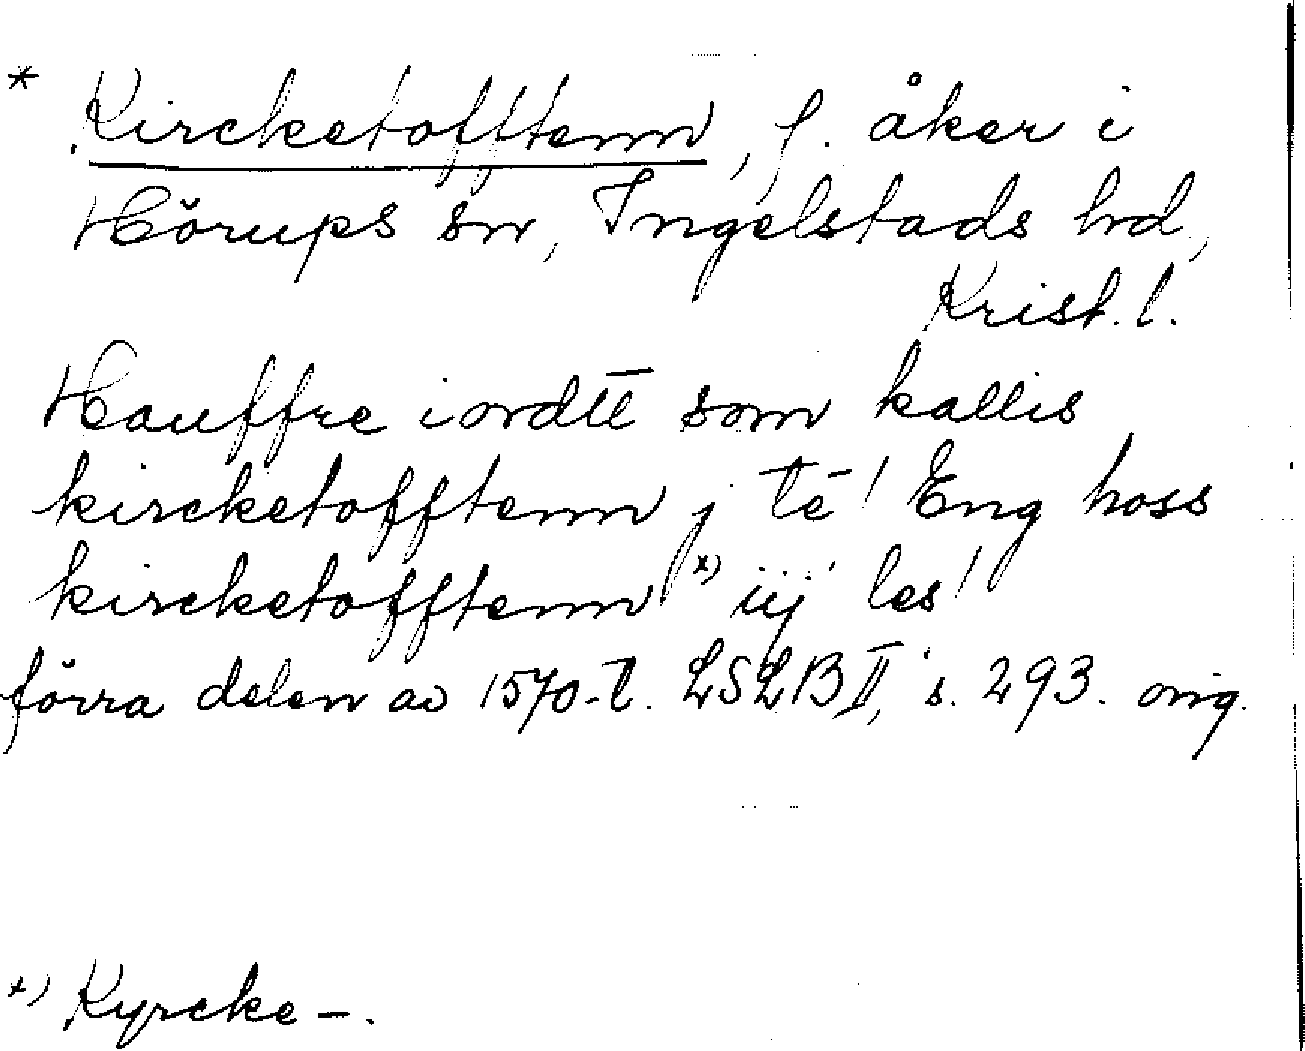 * Kircketofftenn, f. åker i
Hörups sn, Ingelstads hd,
Krist. l.
Hauffre iordtt som kallis
kircketofftenn j tē! Eng hoss
kircketofftenn x) iij les!
förra delen av 1570-t. LSLB II, s. 293. orig.
x) Kyrcke–.